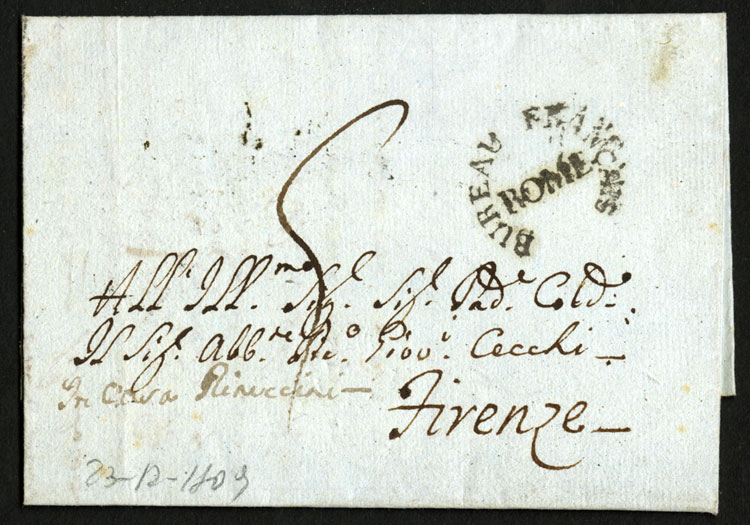 BUREAU FRANÇAIS
ROME
All' Ill.mo Sig.r Sig.r Pad.e Col.do
Il Sig.r Abb.e Giov.i Cecchi
In casa Rinuccini
Firenze
23-12-1809